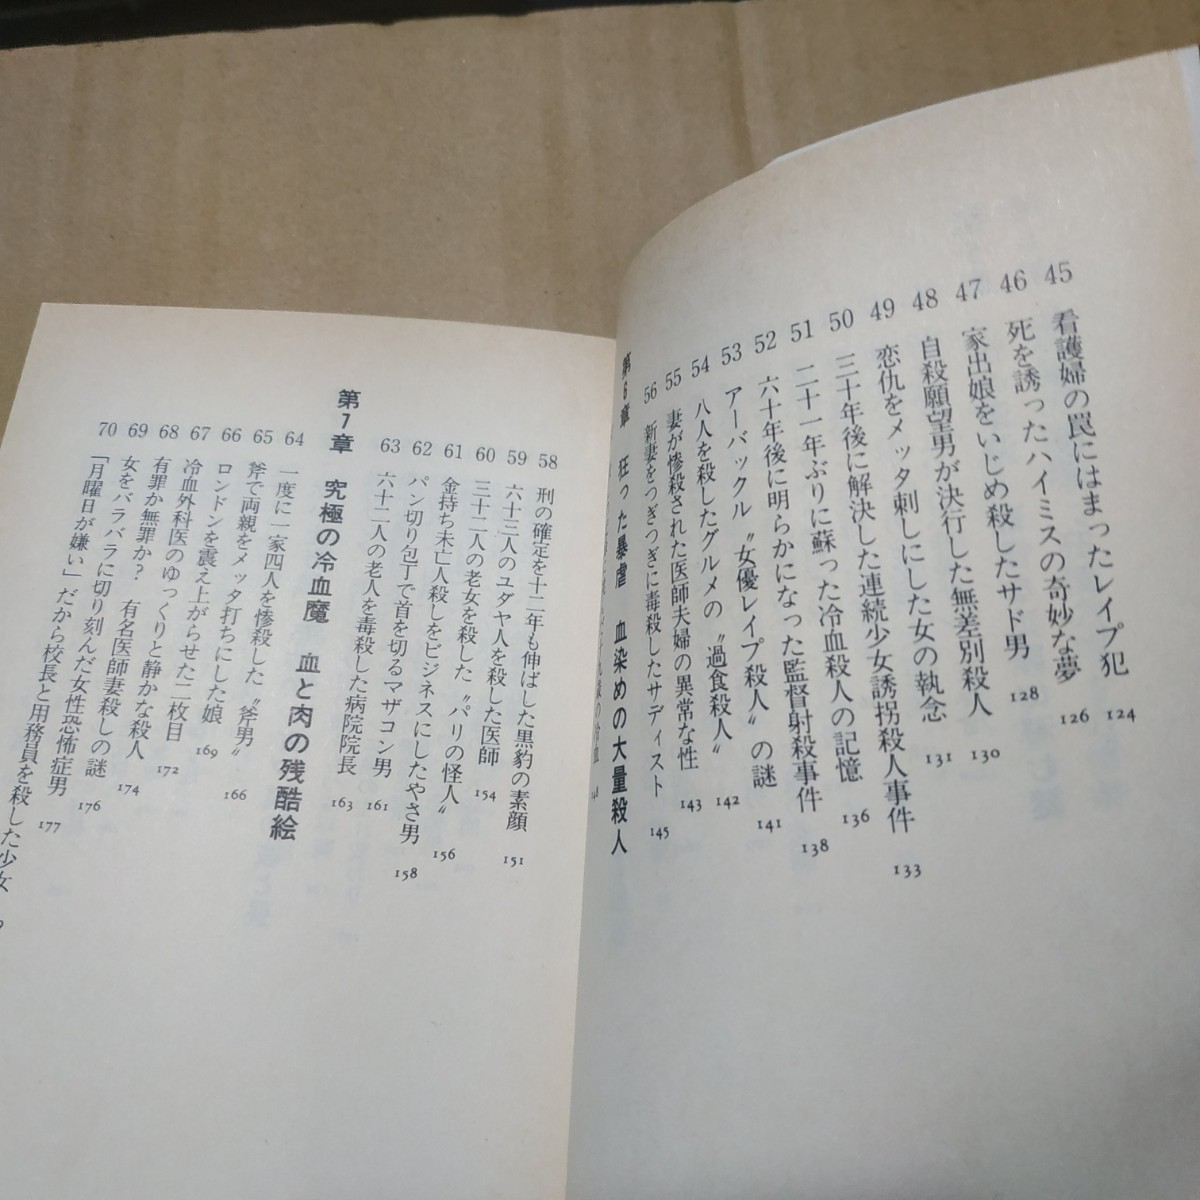 45 看護婦の罠にはまったレイプ犯 124
46 死を誘ったハイミスの奇妙な夢 126
47 家出娘をいじめ殺したサド男 128
48 自殺願望男が決行した無差別殺人 130
49 恋仇をメッタ刺しにした女の執念 131
50 三十年後に解決した連続少女誘拐殺人事件 133
51 二十一年ぶりに蘇った冷血殺人の記憶 136
52 六十年後に明らかになった監督射殺事件 138
53 アーバックル〝女優レイプ殺人〟の謎 141
54 八人を殺したグルメの〝過食殺人〟 142
55 妻が惨殺された医師夫婦の異常な性 143
56 新妻をつぎつぎに毒殺したサディスト 145
第6章 狂った暴虐 血染めの大量殺人
58 刑の確定を十二年も伸ばした黒豹の素顔 151
59 六十三人のユダヤ人を殺した医師 154
60 三十二人の老女を殺した〝パリの怪人〟 156
61 金持ち未亡人殺しをビジネスにしたやさ男 158
62 パン切り包丁で首を切るマザコン男 161
63 六十二人の老人を毒殺した病院院長 163
第7章 究極の冷血魔 血と肉の残酷絵
64 一度に一家四人を惨殺した〝斧男〟 166
65 斧で両親をメッタ打ちにした娘 169
66 ロンドンを震え上がらせた二枚目 172
67 冷血外科医のゆっくりと静かな殺人 174
68 有罪か無罪か? 有名医師妻殺しの謎 176
69 女をバラバラに切り刻んだ女性恐怖症男 177
70 「月曜日が嫌い」だから校長と用務員を殺した少女